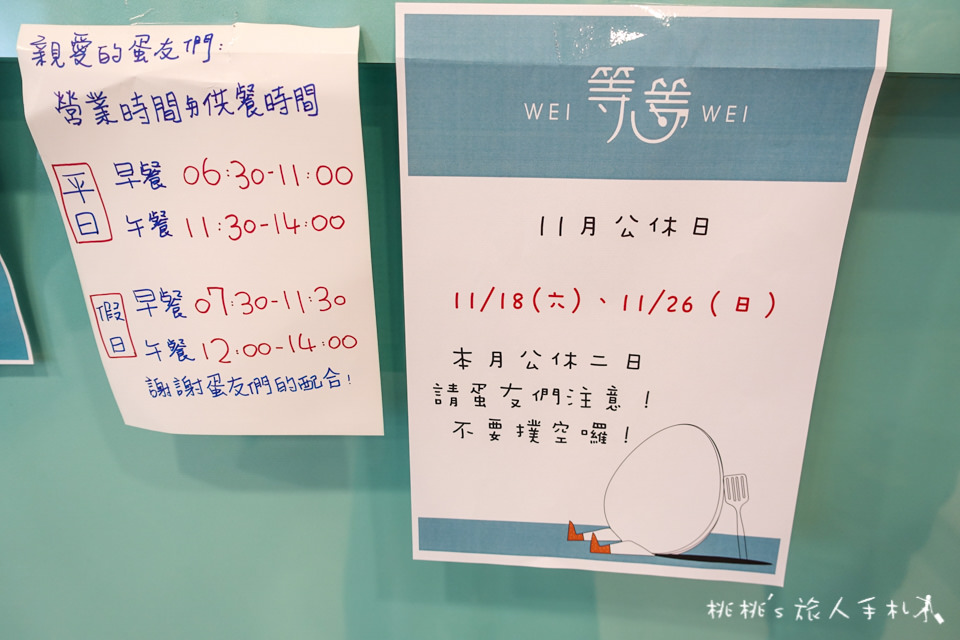 親愛的蛋友們:
營業時間与供餐時間
平日
早餐 06:30-11:00
午餐 11:30-14:00
假日
早餐 07:30-11:30
午餐 12:00-14:00
謝謝蛋友們的配合!
WEI 等等 WEI
11月公休日
11/18(六)、11/26(日)
本月公休二日
請蛋友們注意!
不要撲空囉!
桃桃's旅人手札